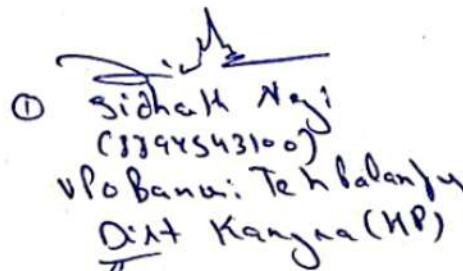 ① Sidhath Negi
(8894543100)
VPO Banuri Teh Palampur
Distt Kangra (HP)